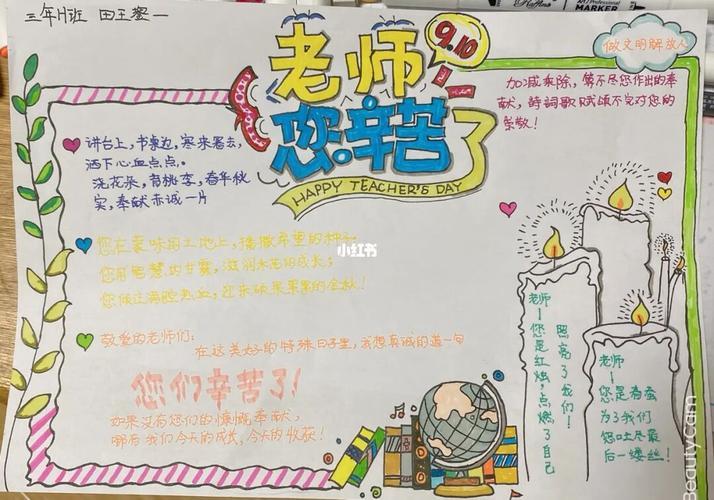 三年
班
田
一
老师
您辛苦了
9.10
HAPPY TEACHER'S DAY
做文明解放人
加减乘除，算不尽您作出的奉
献，诗词歌赋颂不完对您的
崇敬！
讲台上，书桌边，寒来暑去，
洒下心血点点。
浇花朵，育桃李，春华秋
实，奉献赤诚一片
您在
土地上，播撒希望的种子
您用智慧的甘露，滋润
的成长；
您倾注满腔热血，迎来硕果累累的金秋！
小红书
敬爱的老师们：
在这美好的特殊日子里，我想真诚的道一句
您们辛苦了！
如果没有您们的慷慨奉献，
哪有我们今天的成长，今天的收获！
老师—您是红烛，点燃了自己
照亮了我们！
老师—
您是春蚕
为了我们
您吐尽最
后一缕丝！
BeautyCam